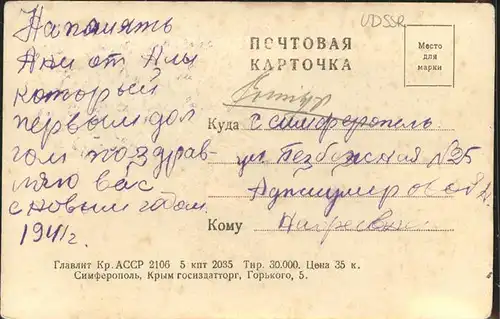 UDSSR
На память
Ани от Алы
который
первым дол
гом поздрав-
ляю вас
с новым годом.
1941 г.
ПОЧТОВАЯ
КАРТОЧКА
Место
для
марки
Куда г. Симферополь
ул. Безбожная №25
Кому
Главлит Кр. АССР 2106 5 кпт 2035 Тир. 30.000. Цена 35 к.
Симферополь, Крым госиздатторг, Горького, 5.